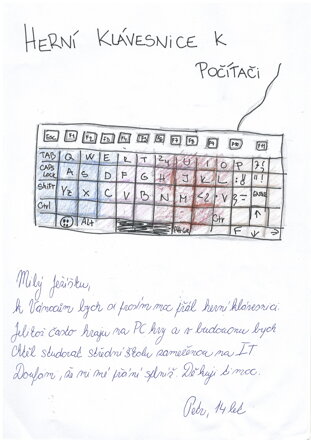 HERNÍ KLÁVESNICE K
POČÍTAČI
ESC F1 F2 F3 F4 F5 F6 F7 F8 F9 F10 F11
TAB Q W E R T U I O P
CAPS LOCK A S D F G H J K L
SHIFT X C V B N M ENTER
Ctrl Alt Ctr F
Milý Ježíšku,
k Vánocům bych si prosím moc přál herní klávesnici.
Jelikož často hraju na PC hry a v budoucnu bych
chtěl studovat střední školu zaměřenou na IT
Doufám, že mi mé přání splníš. Děkuji ti moc.
Petr, 14 let